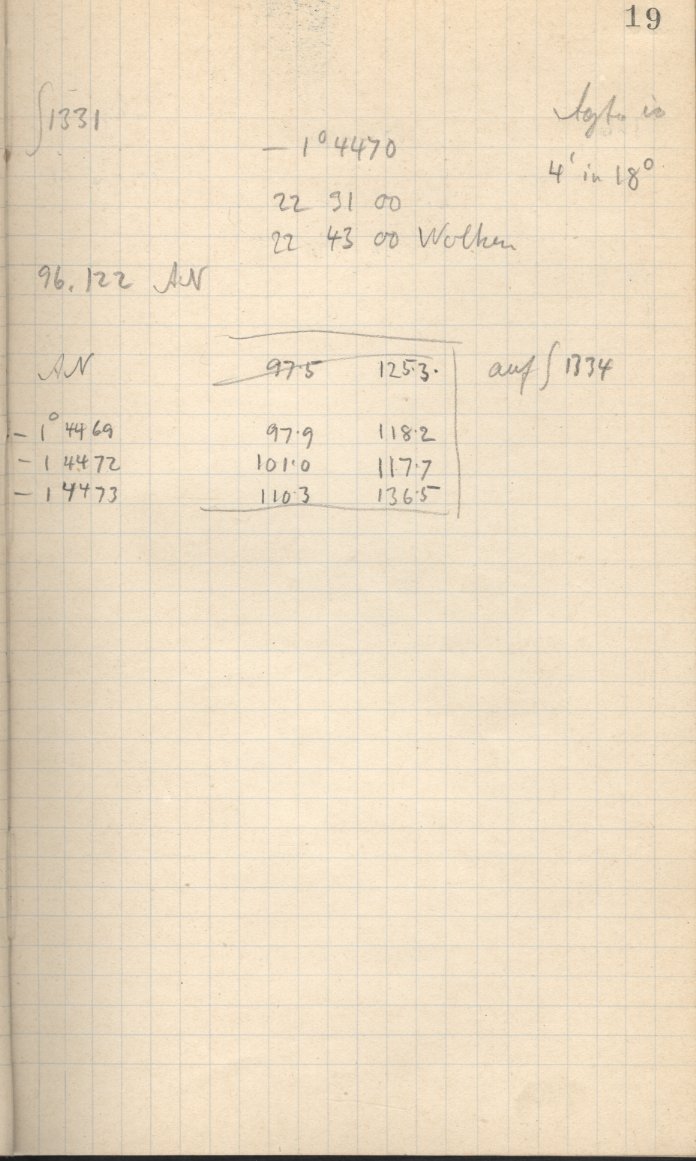 19
∫1331
− 1° 4470
4' in 18°
22 31 00
22 43 00 Wolken
96.122 AN
AN 97.5 125.3. auf ∫1334
− 1° 4469 97.9 118.2
− 1 4472 101.0 117.7
− 1 4473 110.3 136.5